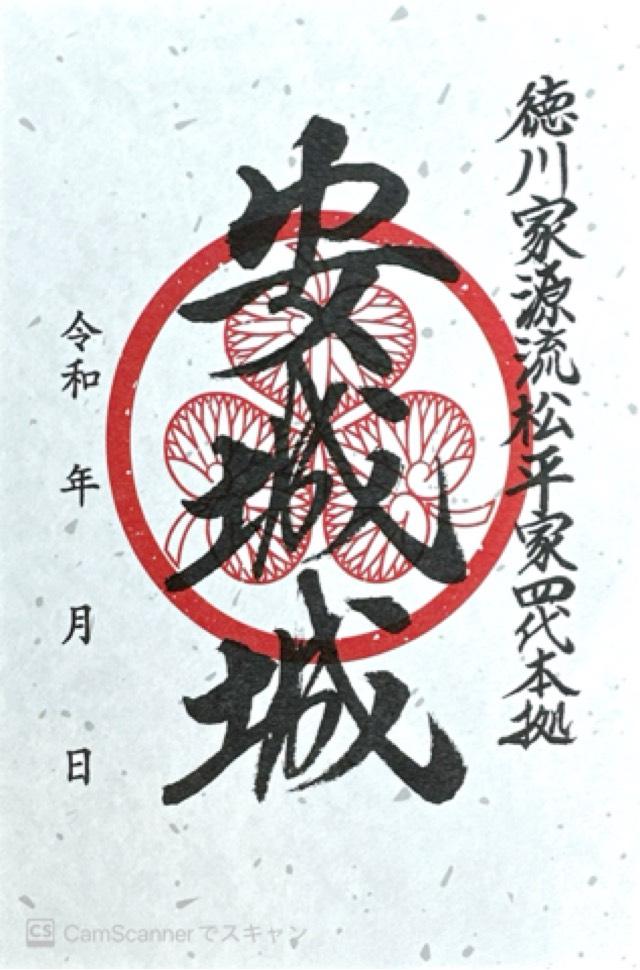 徳川家源流松平家四代本拠
安城城
令和 年 月 日
CS CamScannerでスキャン